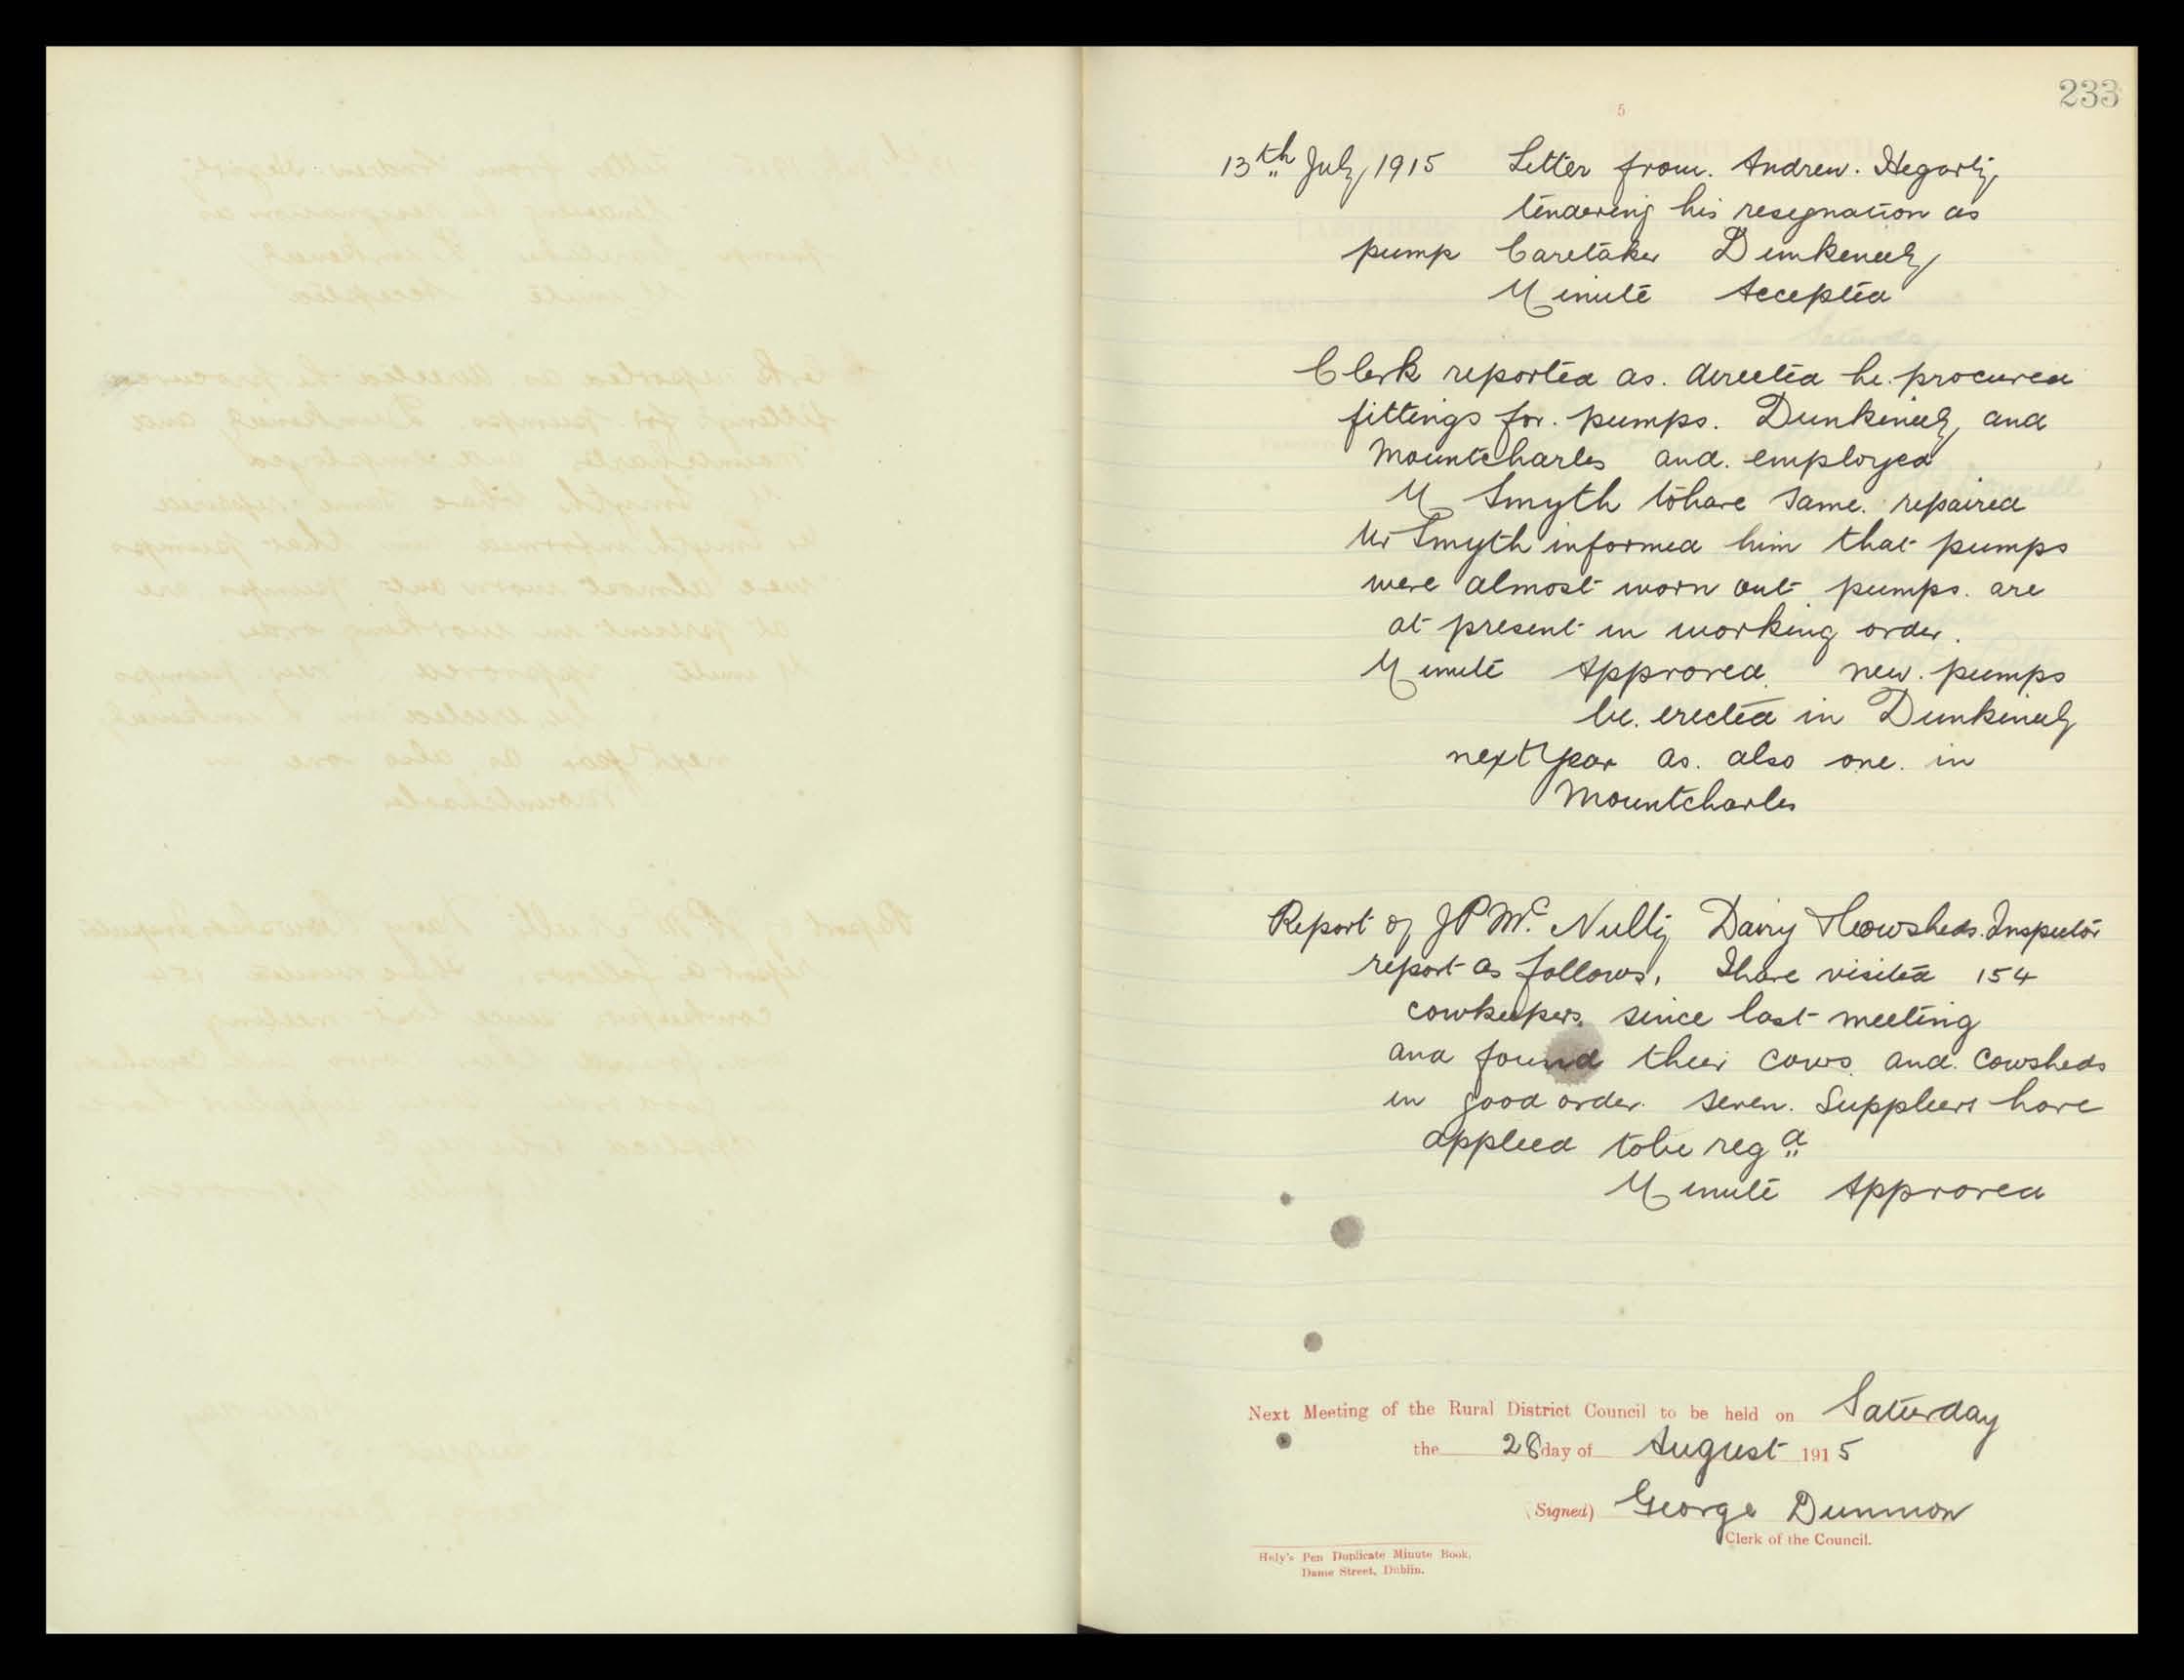 233
5
13th July 1915 Letter from. Andrew. Hegarty
tendering his resignation as
pump Caretaker Dunkineely
Minute Accepted
Clerk reported as. directed he. procured
fittings for. pumps. Dunkineely and
Mountcharles and. employed
M Smyth to have same. repaired
Mr Smyth informed him that pumps
were almost worn out pumps. are
at present in working order.
Minute Approved. new. pumps
be. erected in Dunkineely
next year as. also one. in
Mountcharles
Report of JP Mc Nulty Dairy & Cowsheds. Inspector
report as follows, I have visited 154
cowkeepers. since last meeting
and found their cows. and. cowsheds
in good order. seven. Suppliers have
applied to be regd
Minute Approved
Next Meeting of the Rural District Council to be held on Saturday
the 28 day of August 1915
(Signed) George Dunnion
Clerk of the Council.
Hely's Pen Duplicate Minute Book,
Dame Street, Dublin.